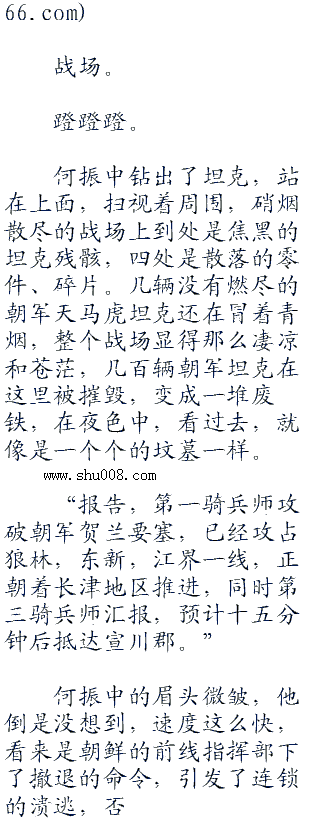 66.com)
战场。
蹬蹬蹬。
何振中钻出了坦克，站
在上面，扫视着周围，硝烟
散尽的战场上到处是焦黑的
坦克残骸，四处是散落的零
件、碎片。几辆没有燃尽的
朝军天马虎坦克还在冒着青
烟，整个战场显得那么凄凉
和苍茫，几百辆朝军坦克在
这里被摧毁，变成一堆废
铁，在夜色中，看过去，就
像是一个个的坟墓一样。
www.shu008.com
“报告，第一骑兵师攻
破朝军贺兰要塞，已经攻占
狼林，东新，江界一线，正
朝着长津地区推进，同时第
三骑兵师汇报，预计十五分
钟后抵达宣川郡。”
何振中的眉头微皱，他
倒是没想到，速度这么快，
看来是朝鲜的前线指挥部下
了撤退的命令，引发了连锁
的溃逃，否